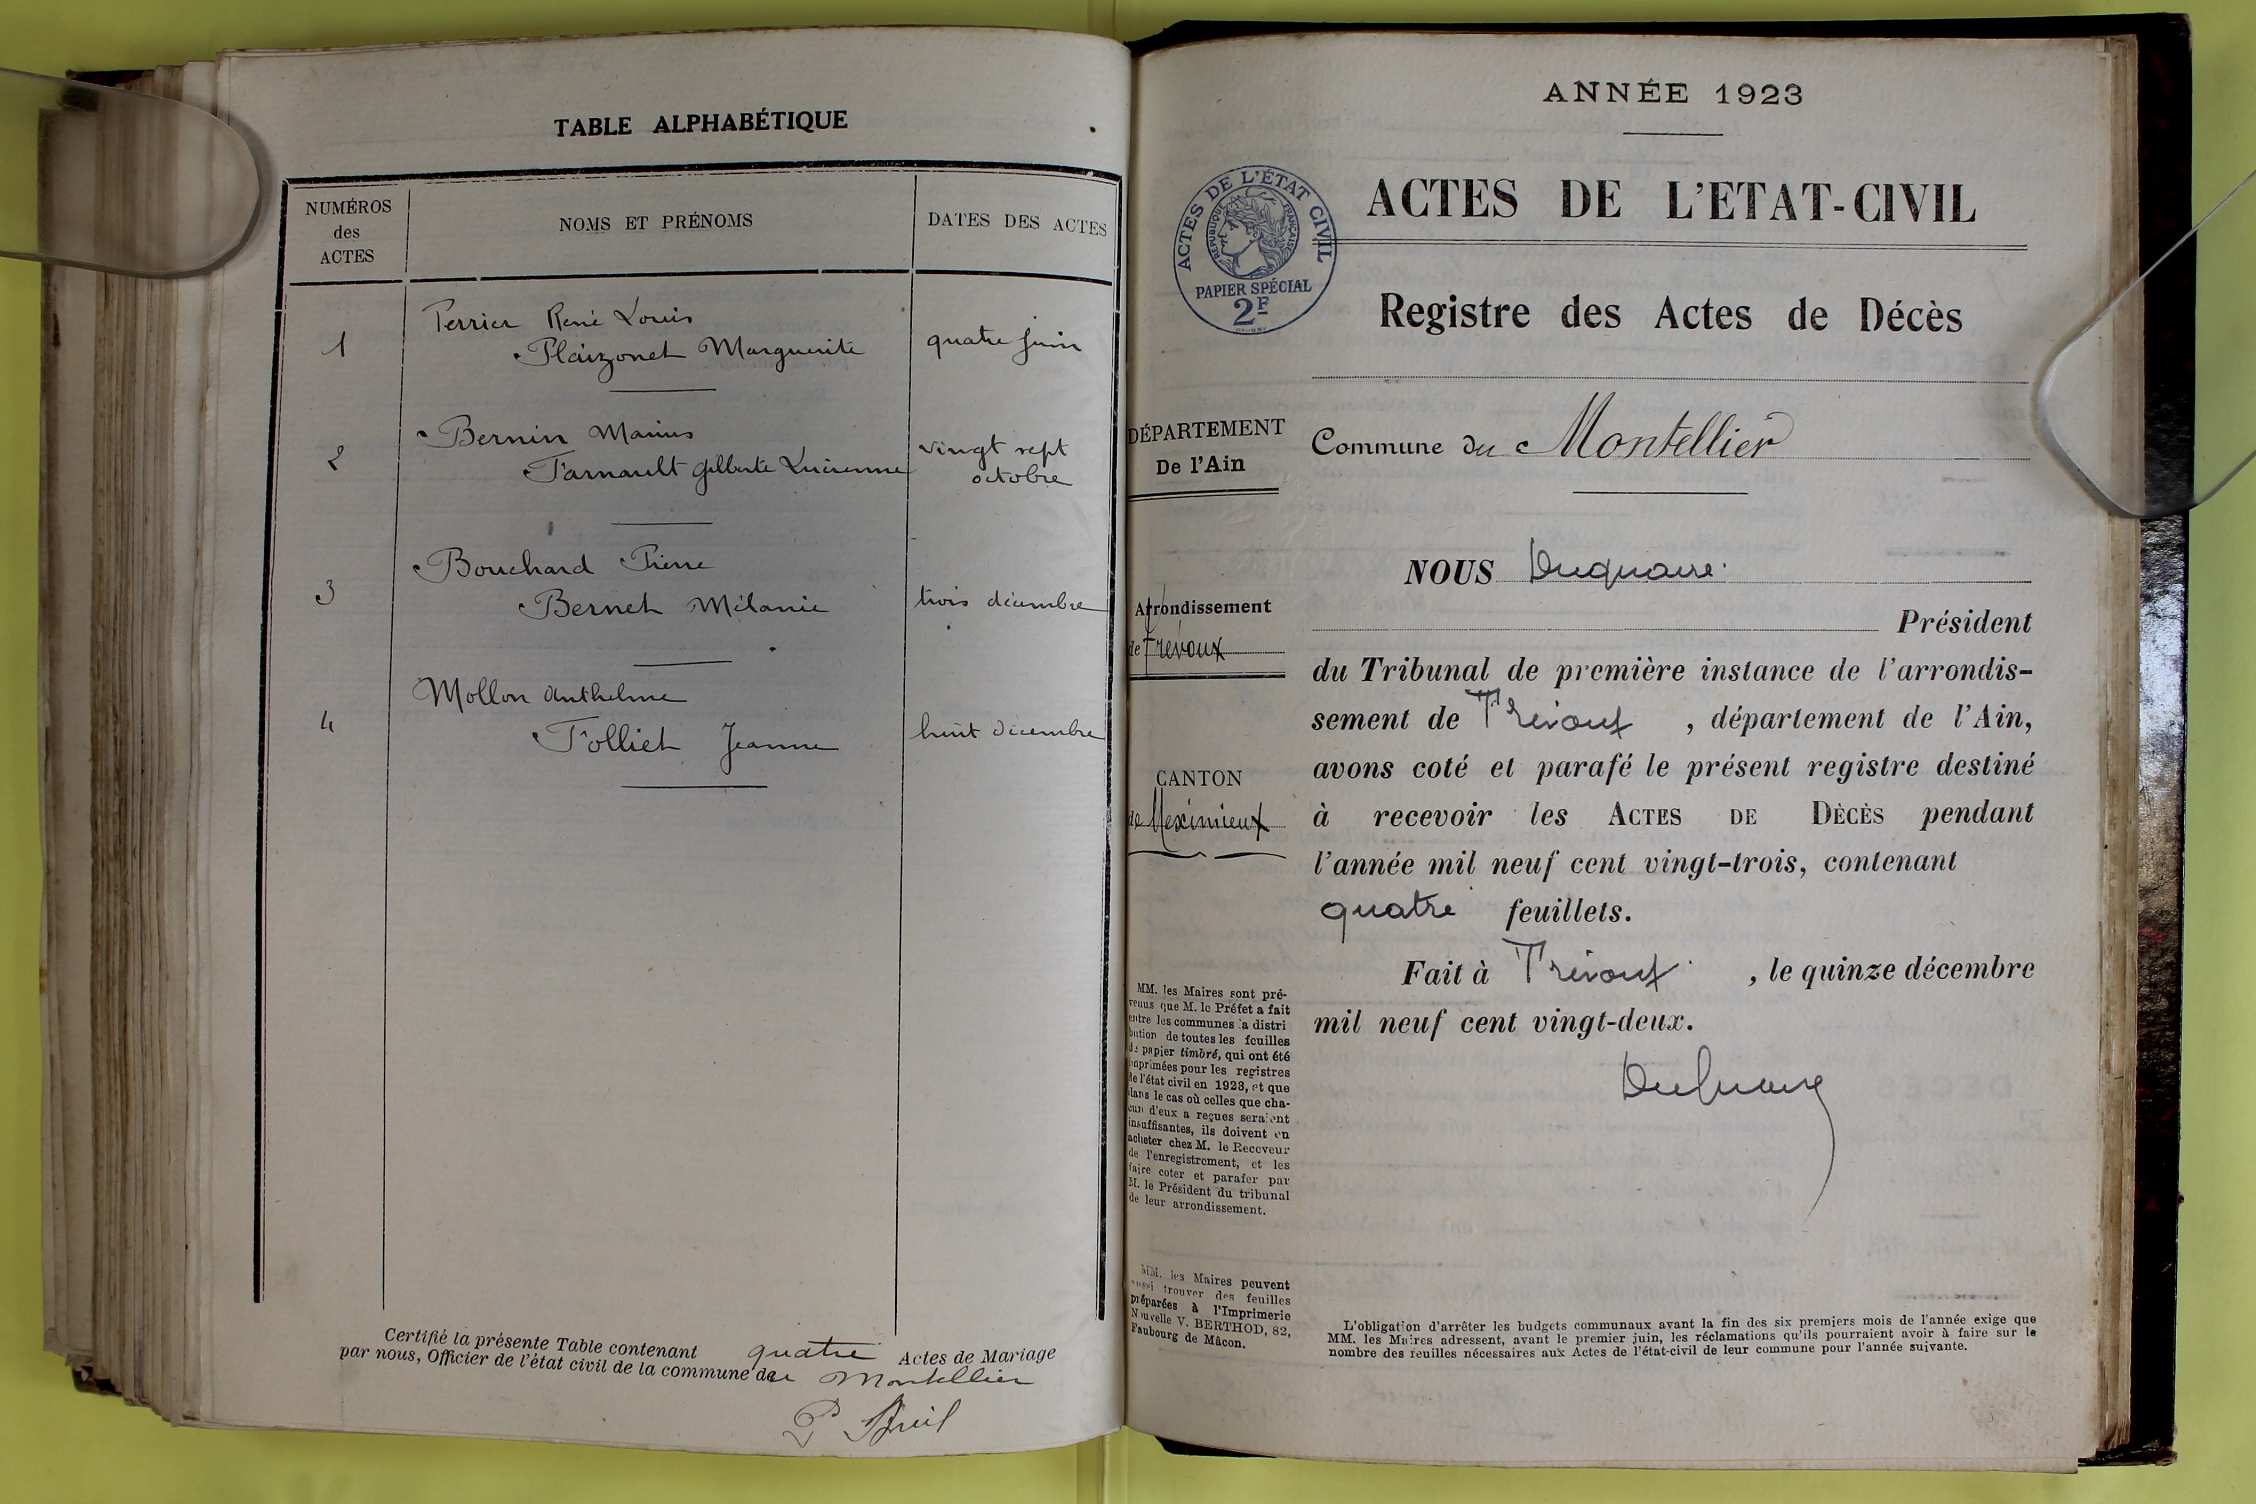 TABLE ALPHABÉTIQUE
NUMÉROS
des
ACTES
NOMS ET PRÉNOMS
DATES DES ACTES
1
Perrier René Louis
Plaizonet Marguerite
quatre juin
2
Bernin Marius
Farnault Gilberte Lucienne
vingt sept
octobre
3
Bouchard Pierre
Bernet Mélanie
trois décembre
4
Mollon Anthelme
Folliet Jeanne
huit décembre
Certifié la présente Table contenant quatre Actes de Mariage
par nous, Officier de l'état civil de la commune du Montellier
ANNÉE 1923
ACTES DE L'ÉTAT CIVIL
RÉPUBLIQUE FRANÇAISE
PAPIER SPÉCIAL
2F
ACTES DE L'ETAT-CIVIL
Registre des Actes de Décès
DÉPARTEMENT
De l'Ain
Commune du Montellier
Arrondissement
de Trévoux
CANTON
de Meximieux
NOUS Duquaire
Président
du Tribunal de première instance de l'arrondis-
sement de Trévoux, département de l'Ain,
avons coté et parafé le présent registre destiné
à recevoir les ACTES DE DÈCÈS pendant
l'année mil neuf cent vingt-trois, contenant
quatre feuillets.
Fait à Trévoux, le quinze décembre
mil neuf cent vingt-deux.
Duquaire
MM. les Maires sont pré-
venus que M. le Préfet a fait
entre les communes la distri
bution de toutes les feuilles
de papier timbré, qui ont été
imprimées pour les registres
de l'état civil en 1923, et que
dans le cas où celles que cha-
cun d'eux a reçues seraient
insuffisantes, ils doivent en
acheter chez M. le Receveur
de l'enregistrement, et les
faire coter et parafer par
M. le Président du tribunal
de leur arrondissement.
MM. les Maires peuvent
aussi trouver des feuilles
préparées à l'Imprimerie
Nouvelle V. BERTHOD, 82,
Faubourg de Mâcon.
L'obligation d'arrêter les budgets communaux avant la fin des six premiers mois de l'année exige que
MM. les Maires adressent, avant le premier juin, les réclamations qu'ils pourraient avoir à faire sur le
nombre des feuilles nécessaires aux Actes de l'état-civil de leur commune pour l'année suivante.